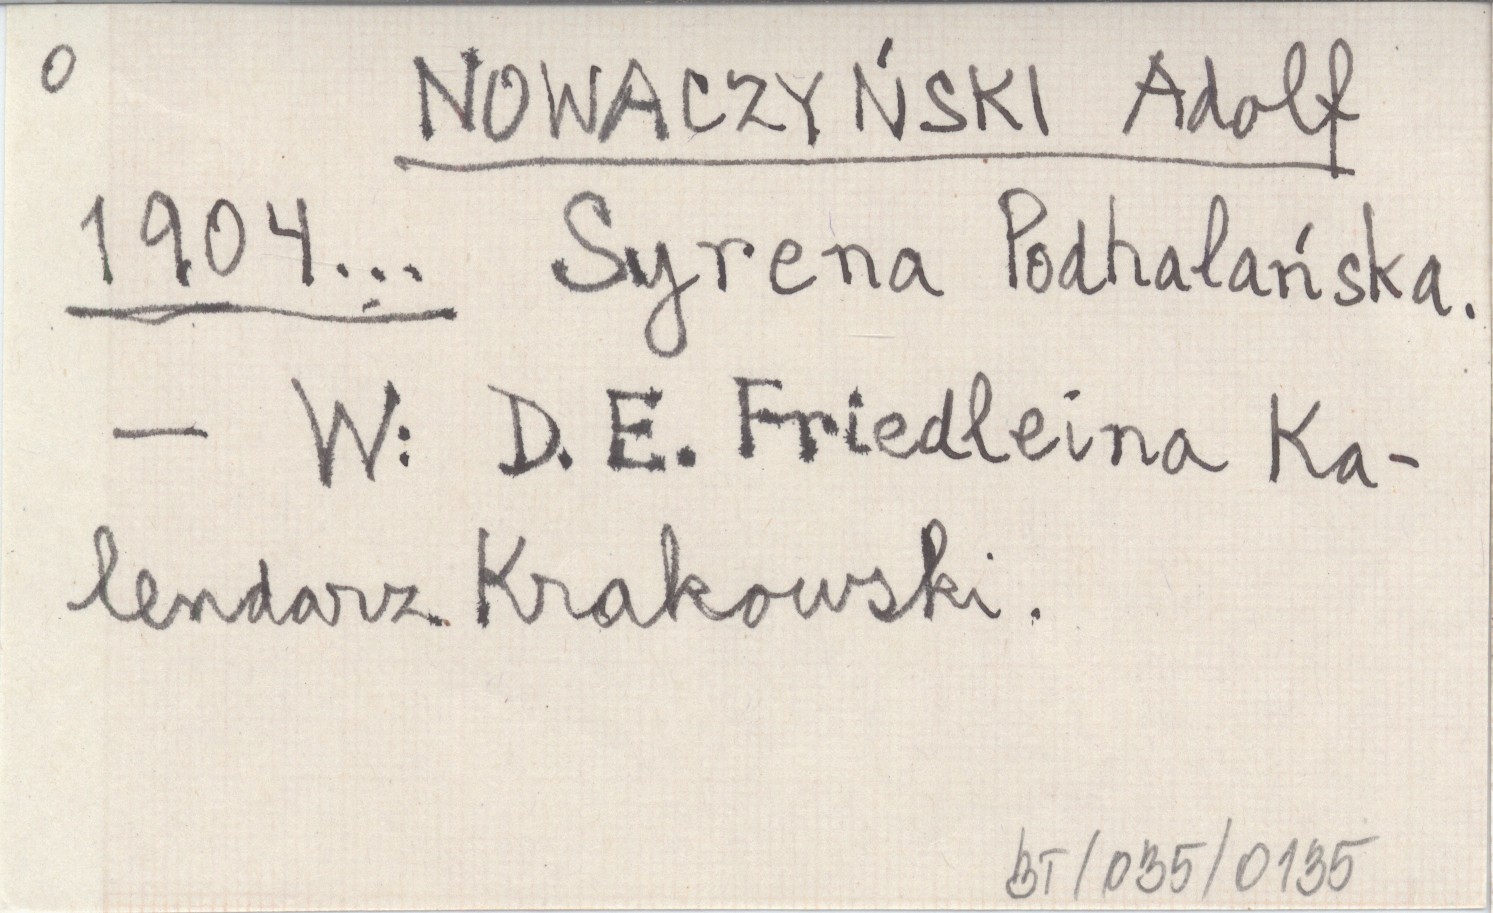 0
NOWACZYŃSKI Adolf
1904... Syrena Podhalańska.
— W: D. E. Friedleina Ka-
lendarz Krakowski.
BT/035/0135